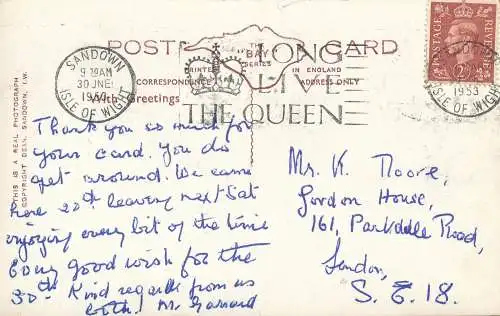 POST CARD
THE "BAY" SERIES
PRINTED IN ENGLAND
CORRESPONDENCE ADDRESS ONLY
With Greetings
LONG
LIVE
THE QUEEN
SANDOWN
9 30AM
30 JNE
1953
ISLE OF WIGHT
POSTAGE REVENUE
1953
ISLE OF WIGHT
THIS IS A REAL PHOTOGRAPH
COPYRIGHT DEAN, SANDOWN, I.W.
Thank you so much for
your card. You do
get around. We came
here 20th leaving next Sat
enjoying every bit of the time
Every good wish for the
30th. Kind regards from us
both. M. Garrard
Mr. K. Moore,
Gordon House,
161, Parkdale Road,
London,
S.E. 18.